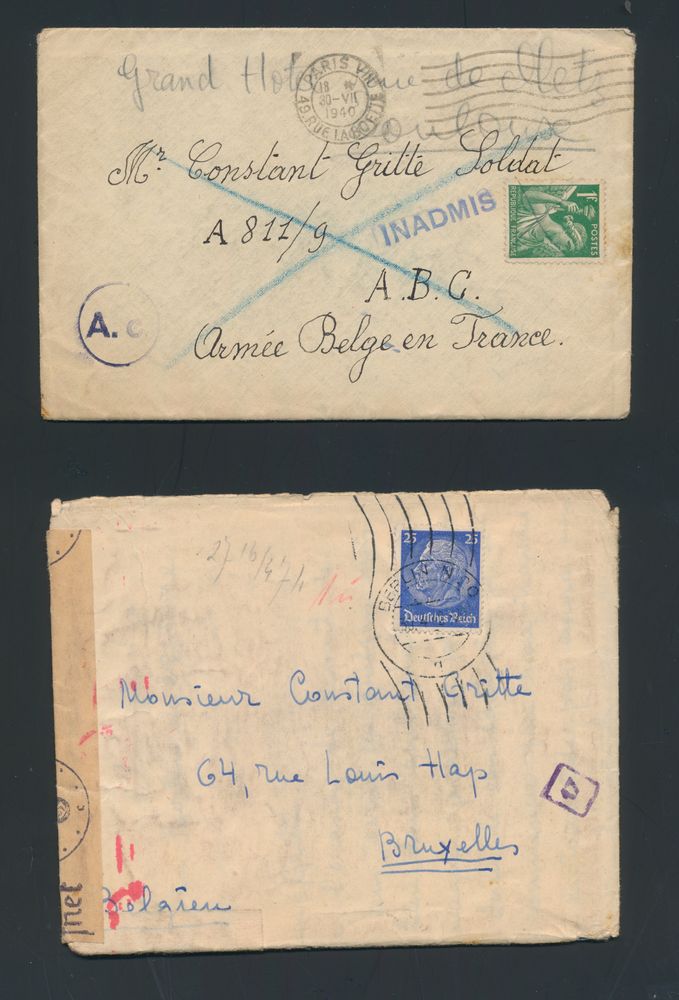 Grand Hotel rue de Metz
Toulouse
PARIS VIII
18
30-VII
1940
49, RUE LA BOETIE
Mr Constant Gritte Soldat
A 811/9
INADMIS
1F
POSTES
REPUBLIQUE FRANÇAISE
A.B.C.
A.
Armée Belge en France.
25 25
BERLIN
Deutsches Reich
Monsieur Constant Gritte
64, rue Louis Hap
Bruxelles
Belgien